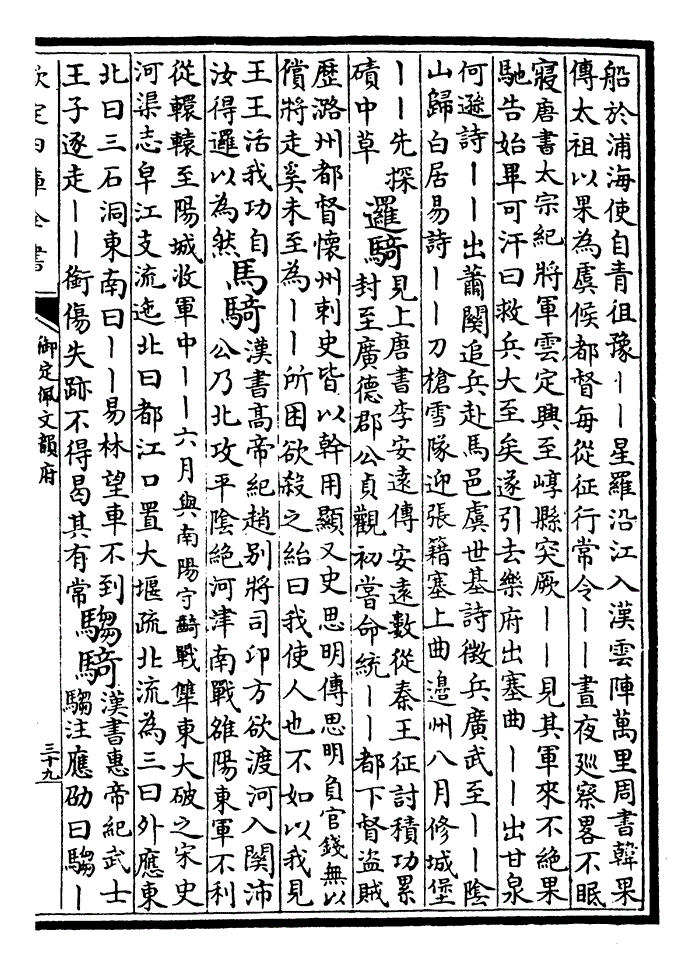 船於浦海使自青徂豫丨丨星羅沿江入漢雲陣萬里周書韓果
傳太祖以果為虞候都督每從征行常令丨丨晝夜廵察畧不眠
寢唐書太宗紀將軍雲定興至崞縣突厥丨丨見其軍來不絶果
馳告始畢可汗曰救兵大至矣遂引去樂府出塞曲丨丨出甘泉
何遜詩丨丨出蕭關追兵赴馬邑虞世基詩徵兵廣武至丨丨陰
山歸白居易詩丨丨刀槍雪隊迎張籍塞上曲邉州八月修城堡
丨丨先探
磧中草
邏騎
見上唐書李安遠傳安遠數從秦王征討積功累
封至廣德郡公貞觀初嘗命統丨丨都下督盗賊
歴潞州都督懷州刺史皆以幹用顯又史思明傳思明負官錢無以
償將走奚未至為丨丨所困欲殺之紿曰我使人也不如以我見
王王活我功自
汝得邏以為然
馬騎
漢書高帝紀趙别將司卬方欲渡河入關沛
公乃北攻平陰絶河津南戰雒陽東軍不利
從轘轅至陽城收軍中丨丨六月與南陽守齮戰犨東大破之宋史
河渠志皁江支流迤北曰都江口置大堰疏北流為三曰外應東
北曰三石洞東南曰丨丨易林望車不到
王子逐走丨丨銜傷失跡不得曷其有常
騶騎
漢書惠帝紀武士
騶注應劭曰騶丨
欽定四庫全書
御定佩文韻府
三十九